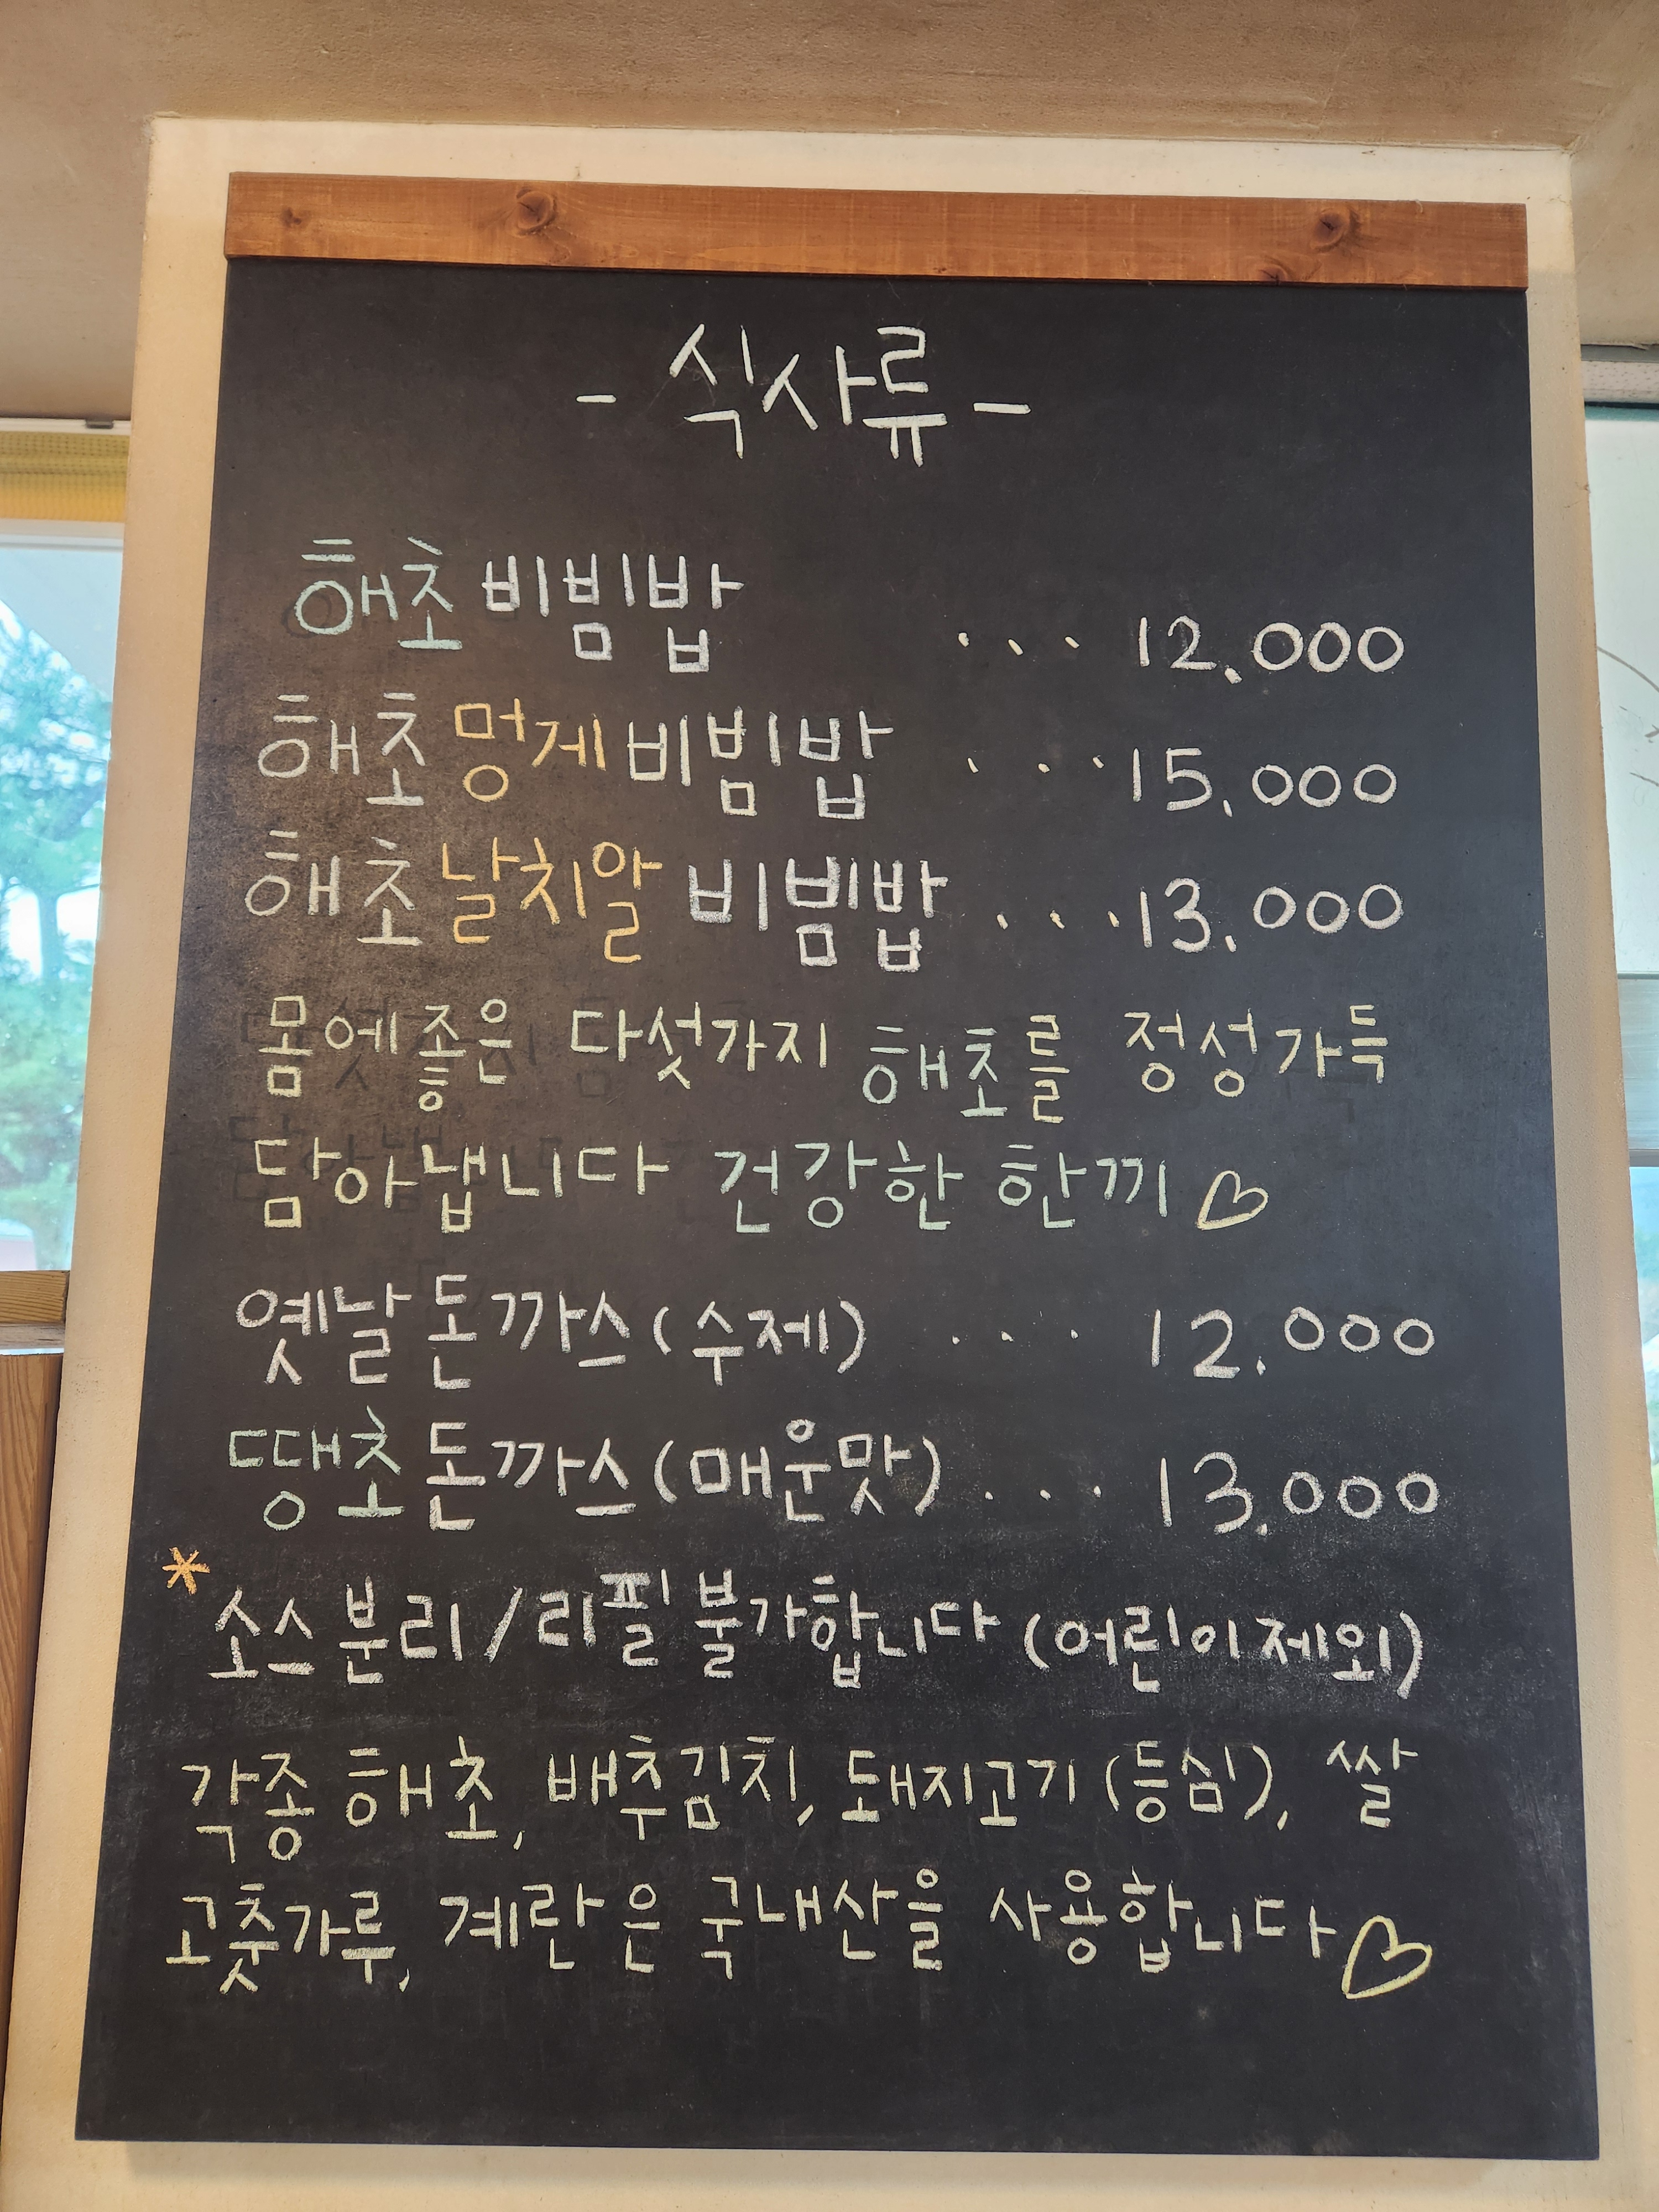 - 식사류 -
해초비빔밥 ... 12,000
해초멍게비빔밥 ... 15,000
해초날치알 비빔밥 ... 13,000
몸에좋은 다섯가지 해초를 정성가득
담아냅니다 건강한 한끼♡
옛날돈까스(수제) ... 12.000
땡초돈까스(매운맛) ... 13.000
*소스분리/리필 불가합니다 (어린이제외)
각종 해초, 배추김치, 돼지고기(등심), 쌀
고춧가루, 계란은 국내산을 사용합니다♡